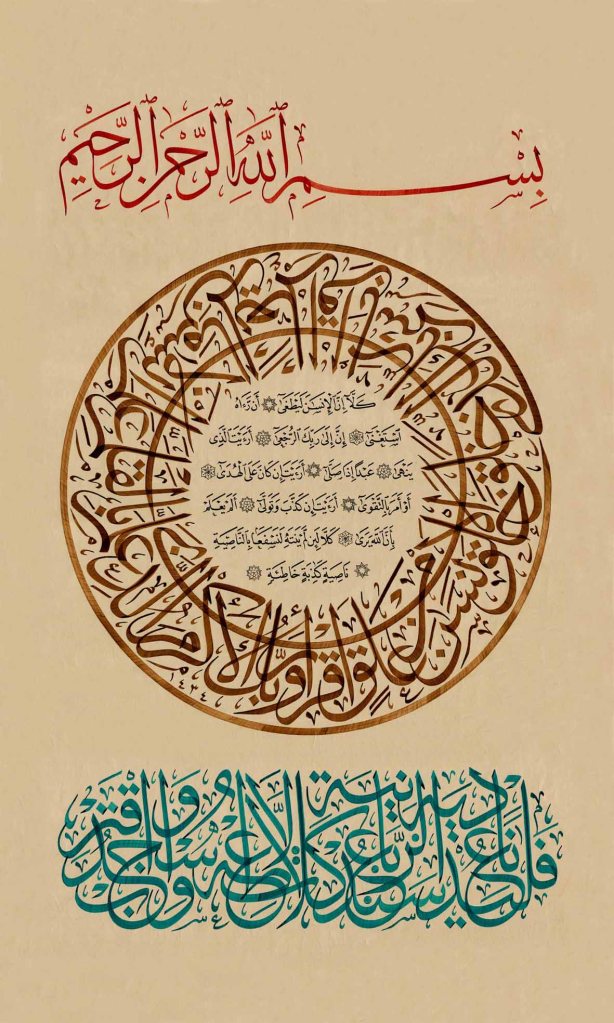 بِسْمِ ٱللَّهِ ٱلرَّحْمَٰنِ ٱلرَّحِيمِ
ٱقْرَأْ بِٱسْمِ رَبِّكَ ٱلَّذِى خَلَقَ خَلَقَ ٱلْإِنسَٰنَ مِنْ عَلَقٍ ٱقْرَأْ وَرَبُّكَ ٱلْأَكْرَمُ ٱلَّذِى عَلَّمَ بِٱلْقَلَمِ عَلَّمَ ٱلْإِنسَٰنَ مَا لَمْ يَعْلَمْ
كَلَّآ إِنَّ ٱلْإِنسَٰنَ لَيَطْغَىٰٓ أَن رَّءَاهُ
ٱسْتَغْنَىٰٓ إِنَّ إِلَىٰ رَبِّكَ ٱلرُّجْعَىٰٓ أَرَءَيْتَ ٱلَّذِى
يَنْهَىٰ عَبْدًا إِذَا صَلَّىٰٓ أَرَءَيْتَ إِن كَانَ عَلَى ٱلْهُدَىٰٓ
أَوْ أَمَرَ بِٱلتَّقْوَىٰٓ أَرَءَيْتَ إِن كَذَّبَ وَتَوَلَّىٰٓ أَلَمْ يَعْلَم
بِأَنَّ ٱللَّهَ يَرَىٰ كَلَّا لَئِن لَّمْ يَنتَهِ لَنَسْفَعًۢا بِٱلنَّاصِيَةِ
نَاصِيَةٍ كَٰذِبَةٍ خَاطِئَةٍ
فَلْيَدْعُ نَادِيَهُۥ سَنَدْعُ ٱلزَّبَانِيَةَ كَلَّا لَا تُطِعْهُ وَٱسْجُدْ وَٱقْتَرِب